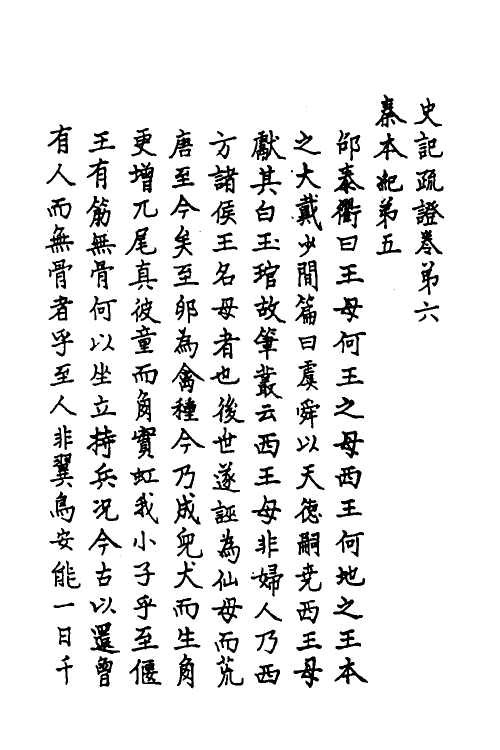 史記疏證卷第六
秦本紀第五
邵泰衢曰王母何王之母西王何地之王本
之大戴少間篇曰虞舜以天德嗣堯西王母
獻其白玉琯故筆叢云西王母非婦人乃西
方諸侯王名母者也後世遂誣為仙母而荒
唐至今矣至卵為禽種今乃成兒犬而生角
更增兀尾真彼童而角實虹我小子乎至偃
王有筋無骨何以坐立持兵况今古以還曾
有人而無骨者乎至人非翼鳥安能一日千